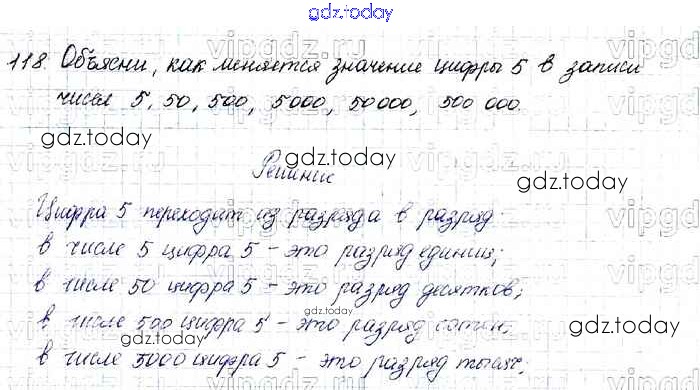 gdz.today
118. Объясни, как меняется значение цифры 5 в записи
чисел 5, 50, 500, 5000, 50000, 500 000.
gdz.today
gdz.today
gdz.today
Решение
Цифра 5 переходит из разряда в разряд
в числе 5 цифра 5 - это разряд единиц;
в числе 50 цифра 5 - это разряд десятков;
в числе 500 цифра 5 - это разряд сотен;
gdz.today
gdz.today
в числе 5000 цифра 5 - это разряд тысяч;